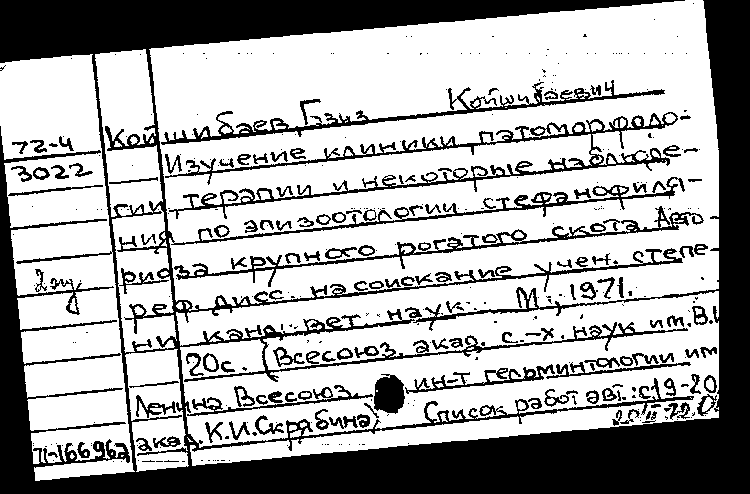 Койшибаев, Газиз Койшибаевич
72-4
3022
Изучение клиники, патоморфоло-
гии, терапии и некоторые наблюде-
ния по эпизоотологии стефанофиля-
риоза крупного рогатого скота. Авто-
2 эк
реф. дисс. на соискание учен. степе-
ни канд. вет. наук. М., 1971.
20с. (Всесоюз. акад. с.-х. наук им. В.И
Ленина. Всесоюз. ин-т гельминтологии им
акад. К.И.Скрябина) Список работ авт.: с19-20
71-166962